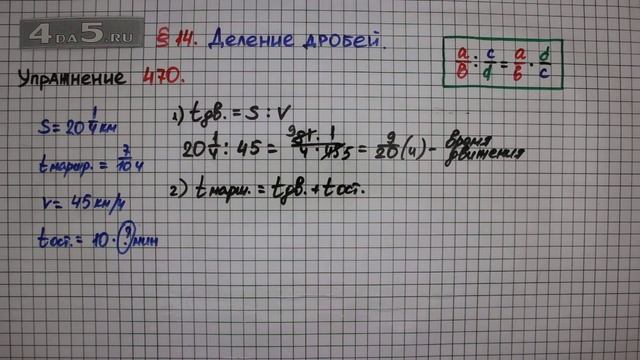 4DA5.RU
§ 14. Деление дробей.
Упражнение 470.
a/в : c/d = a/в · d/c
S = 20 1/4 км
t марш. = 7/10 ч
v = 45 км/ч
t ост. = 10 · ? мин
1) t дв. = S : V
20 1/4 : 45 = 81 · 1 / 4 · 45 = 9/20 (ч) - время движения
2) t марш. = t дв. + t ост.